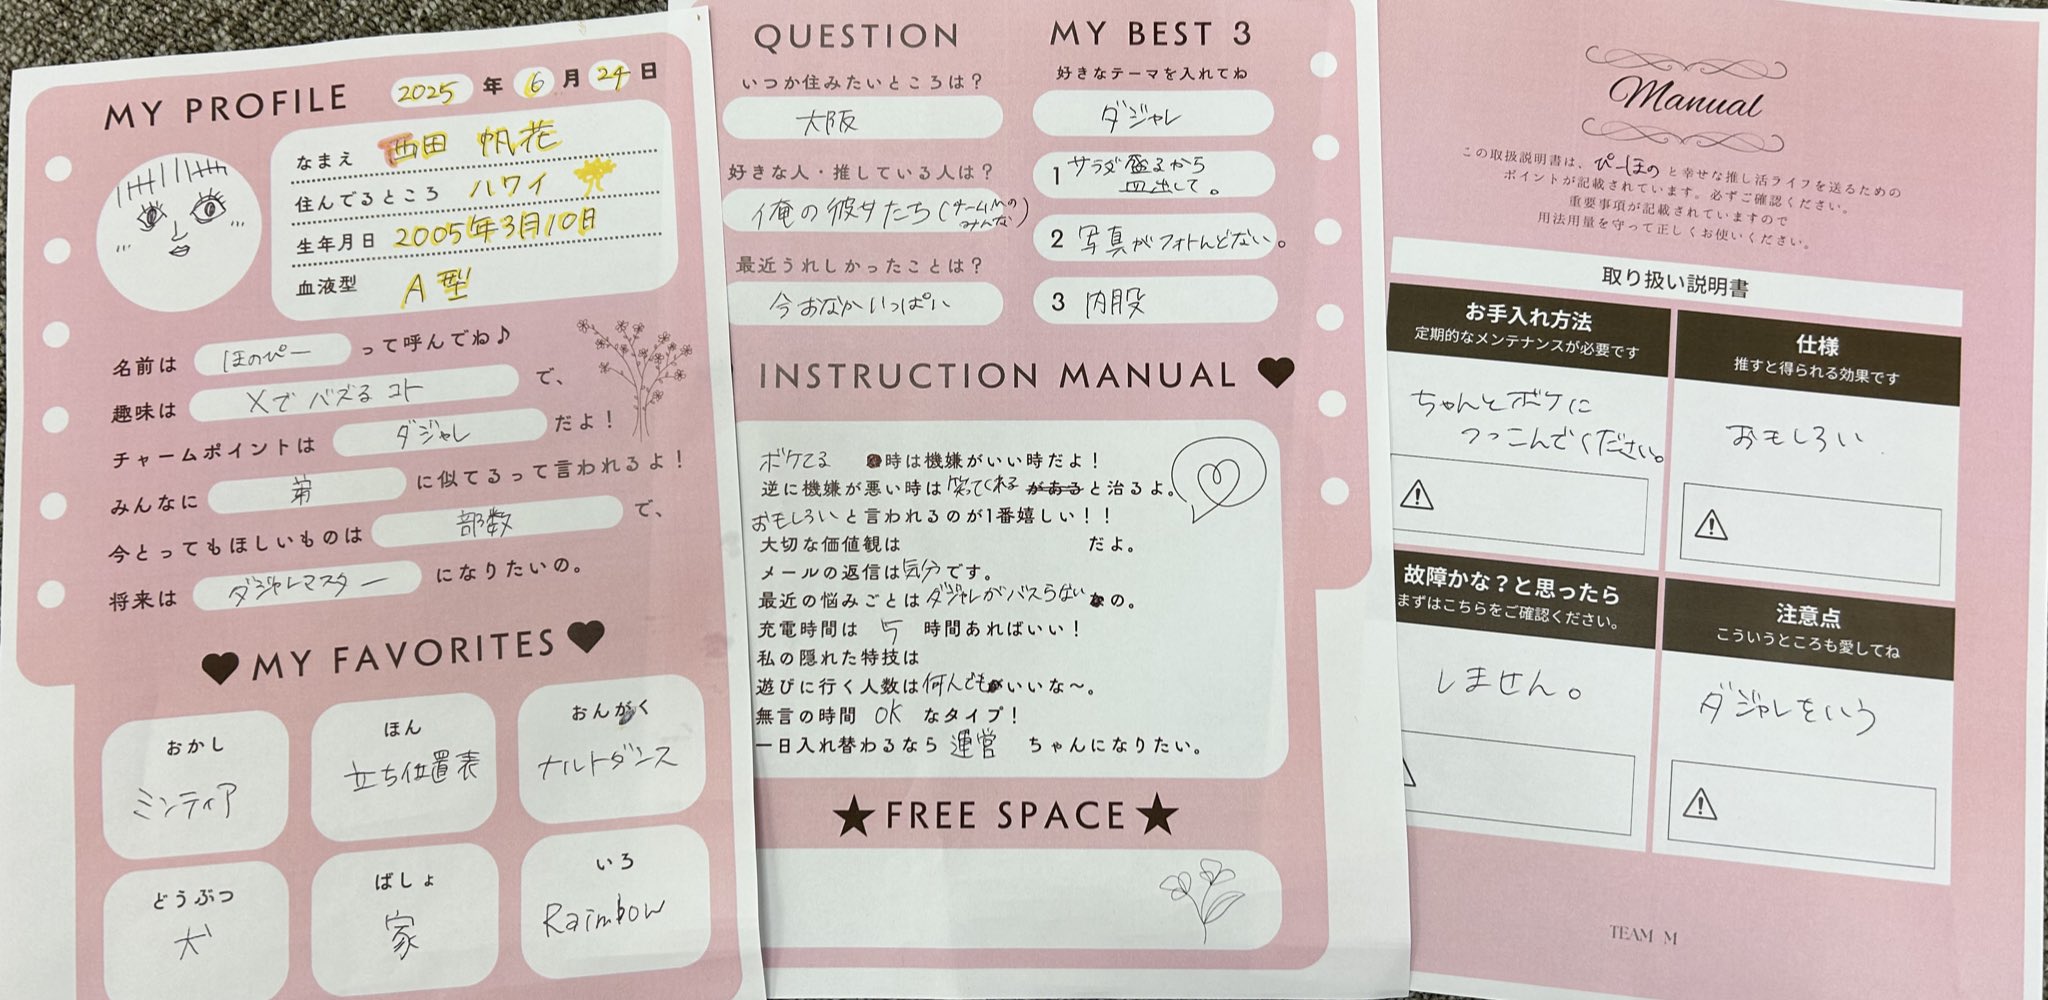 MY PROFILE
2025 年 6 月 24 日
なまえ 西田 帆花
住んでるところ ハワイ
生年月日 2005年3月10日
血液型 A型
名前は ほのぴー って呼んでね♪
趣味は Xでバズるコト で、
チャームポイントは ダジャレ だよ!
みんなに 弟 に似てるって言われるよ!
今とってもほしいものは 部数 で、
将来は ダジャレマスター になりたいの。
♥MY FAVORITES♥
おかし
ミンティア
ほん
立ち位置表
おんがく
ナルトダンス
どうぶつ
犬
ばしょ
家
いろ
Raimbow
QUESTION
いつか住みたいところは?
大阪
好きな人・推している人は?
俺の彼女たち(チームMのみんな)
最近うれしかったことは?
今おなかいっぱい
MY BEST 3
好きなテーマを入れてね
ダジャレ
1 サラダ盛るから
皿出して。
2 写真がフォトんどない。
3 内股
INSTRUCTION MANUAL ♥
ボケてる 時は機嫌がいい時だよ!
逆に機嫌が悪い時は笑ってくれると治るよ。
おもしろいと言われるのが1番嬉しい!!
大切な価値観は だよ。
メールの返信は気分です。
最近の悩みごとはダジャレがバズらないなの。
充電時間は 5 時間あればいい!
私の隠れた特技は
遊びに行く人数は何人でもいいな〜。
無言の時間 OK なタイプ!
一日入れ替わるなら 運営 ちゃんになりたい。
★FREE SPACE★
Manual
この取扱説明書は、ぴーほのと幸せな推し活ライフを送るための
ポイントが記載されています。必ずご確認ください。
重要事項が記載されていますので
用法用量を守って正しくお使いください。
取り扱い説明書
お手入れ方法
定期的なメンテナンスが必要です
ちゃんとボケに
つっこんでください。
仕様
推すと得られる効果です
おもしろい
故障かな?と思ったら
まずはこちらをご確認ください。
しません。
注意点
こういうところも愛してね
ダジャレをいう
TEAM M